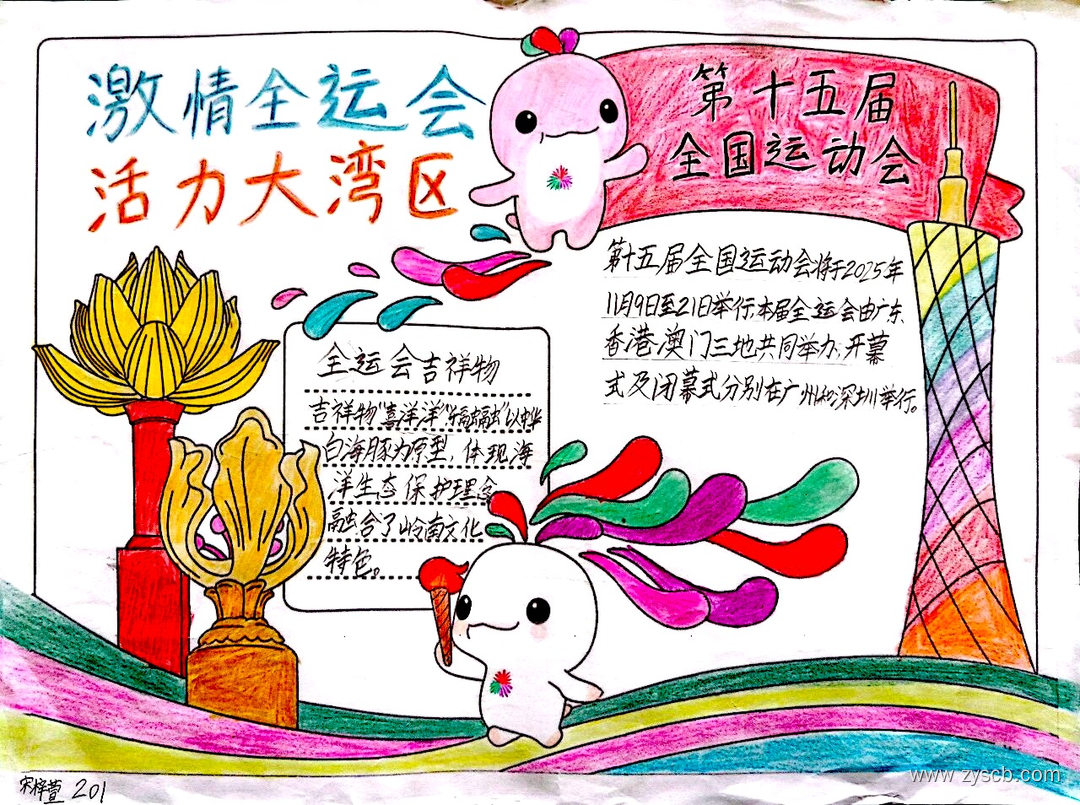 激情全运会
活力大湾区
第十五届
全国运动会
第十五届全国运动会将于2025年
11月9日至21日举行,本届全运会由广东、
香港澳门三地共同举办,开幕
式及闭幕式分别在广州和深圳举行。
全运会吉祥物
吉祥物"喜洋洋""乐融融"以中华
白海豚为原型,体现海
洋生态保护理念
融合了岭南文化
特色。
宋梓萱 201
www.zyscb.com